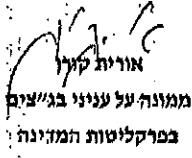 אורית קורן
ממונה על עניני בג״צים
בפרקליטות המדינה